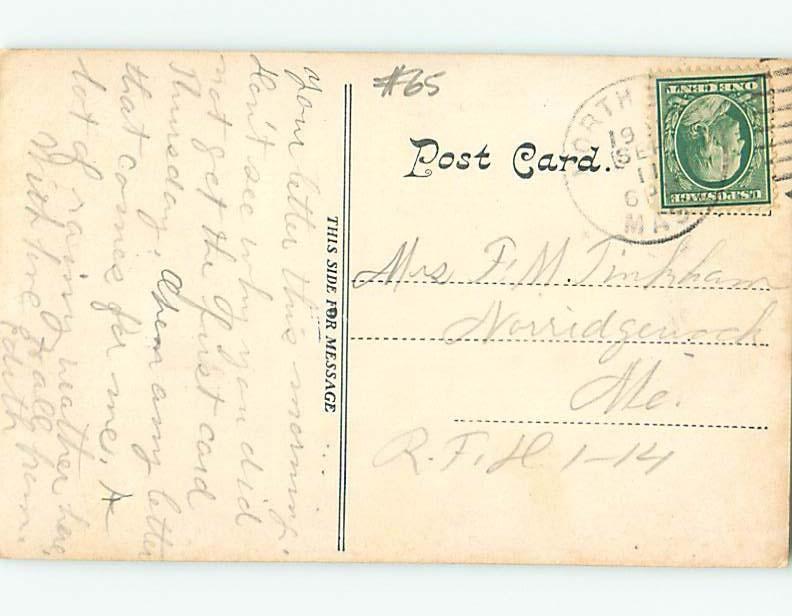 #65
Post Card.
NORTH
19
SEP
11
6 P
MAS
ONE CENT
U.S. POSTAGE
THIS SIDE FOR MESSAGE
Mrs F. M. Tinkham
Norridgewock
Me.
R. F. D. 1-14
Your letter this morning.
don't see why you did
not get the first card
Thursday. Open any letter
that comes for me. A
lot of rainy weather here
With love to all from
Edith